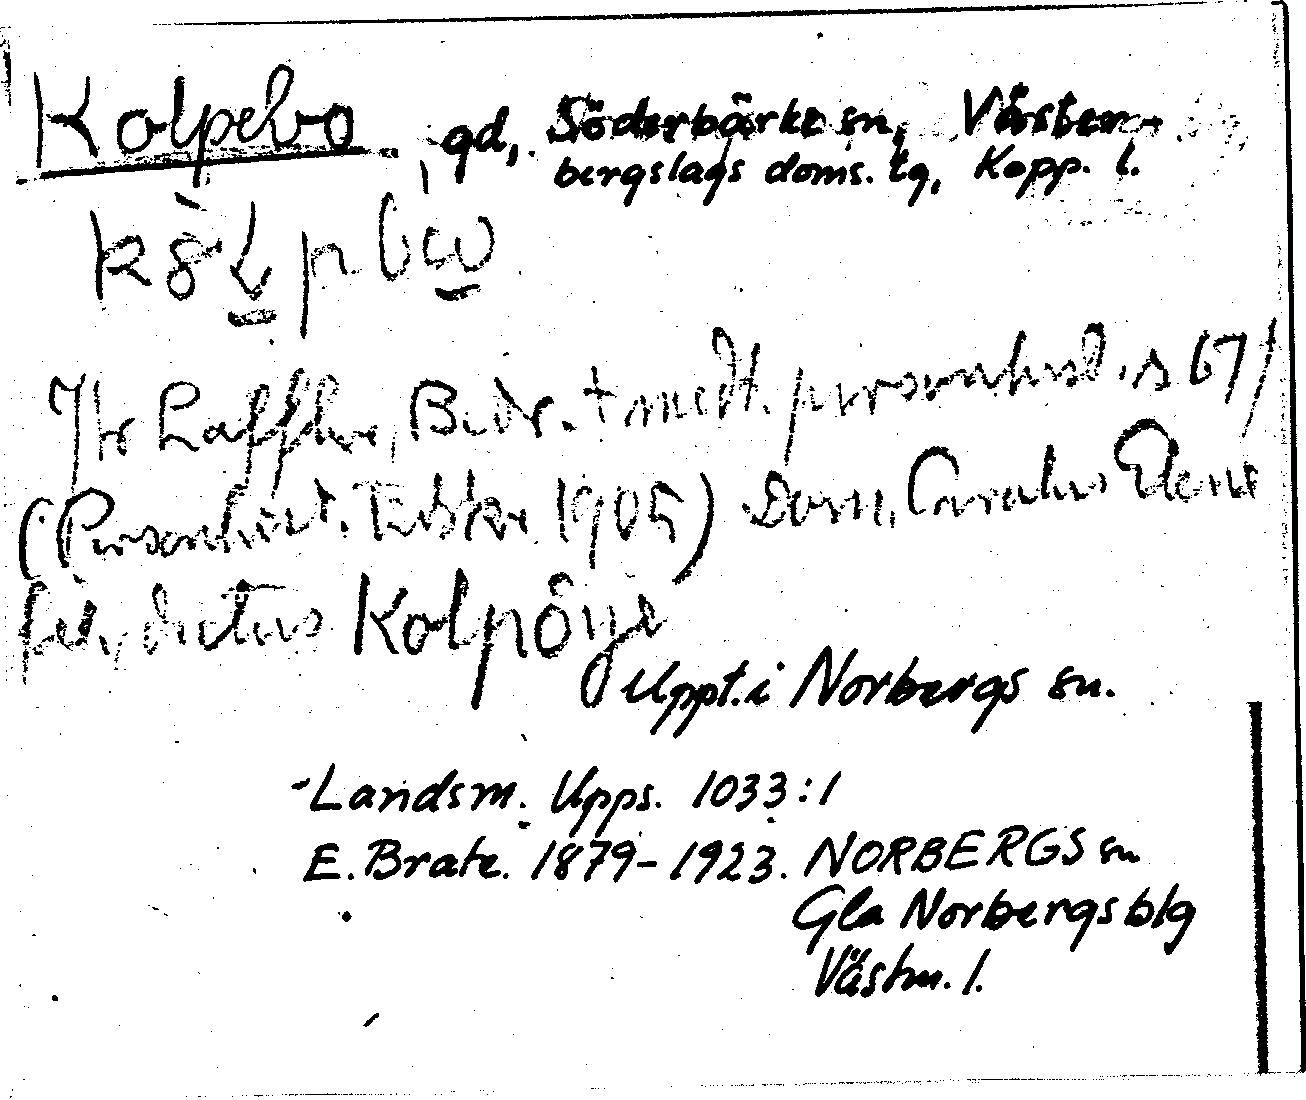 Kolpebo, gd, Söderbärke sn, Väster-
bergslags doms. tg, Kopp. l.
Jfr Läffler, Bidr. t. medt. personhist. s 67/
(Personhist. Tidskr. 1905) Dom. Canutus
dictus Kolpöye
Uppt. i Norbergs sn.
Landsm. Upps. 1033:1
E. Brate. 1879-1923. NORBERGS sn
Gla Norbergs blg
Västm. l.